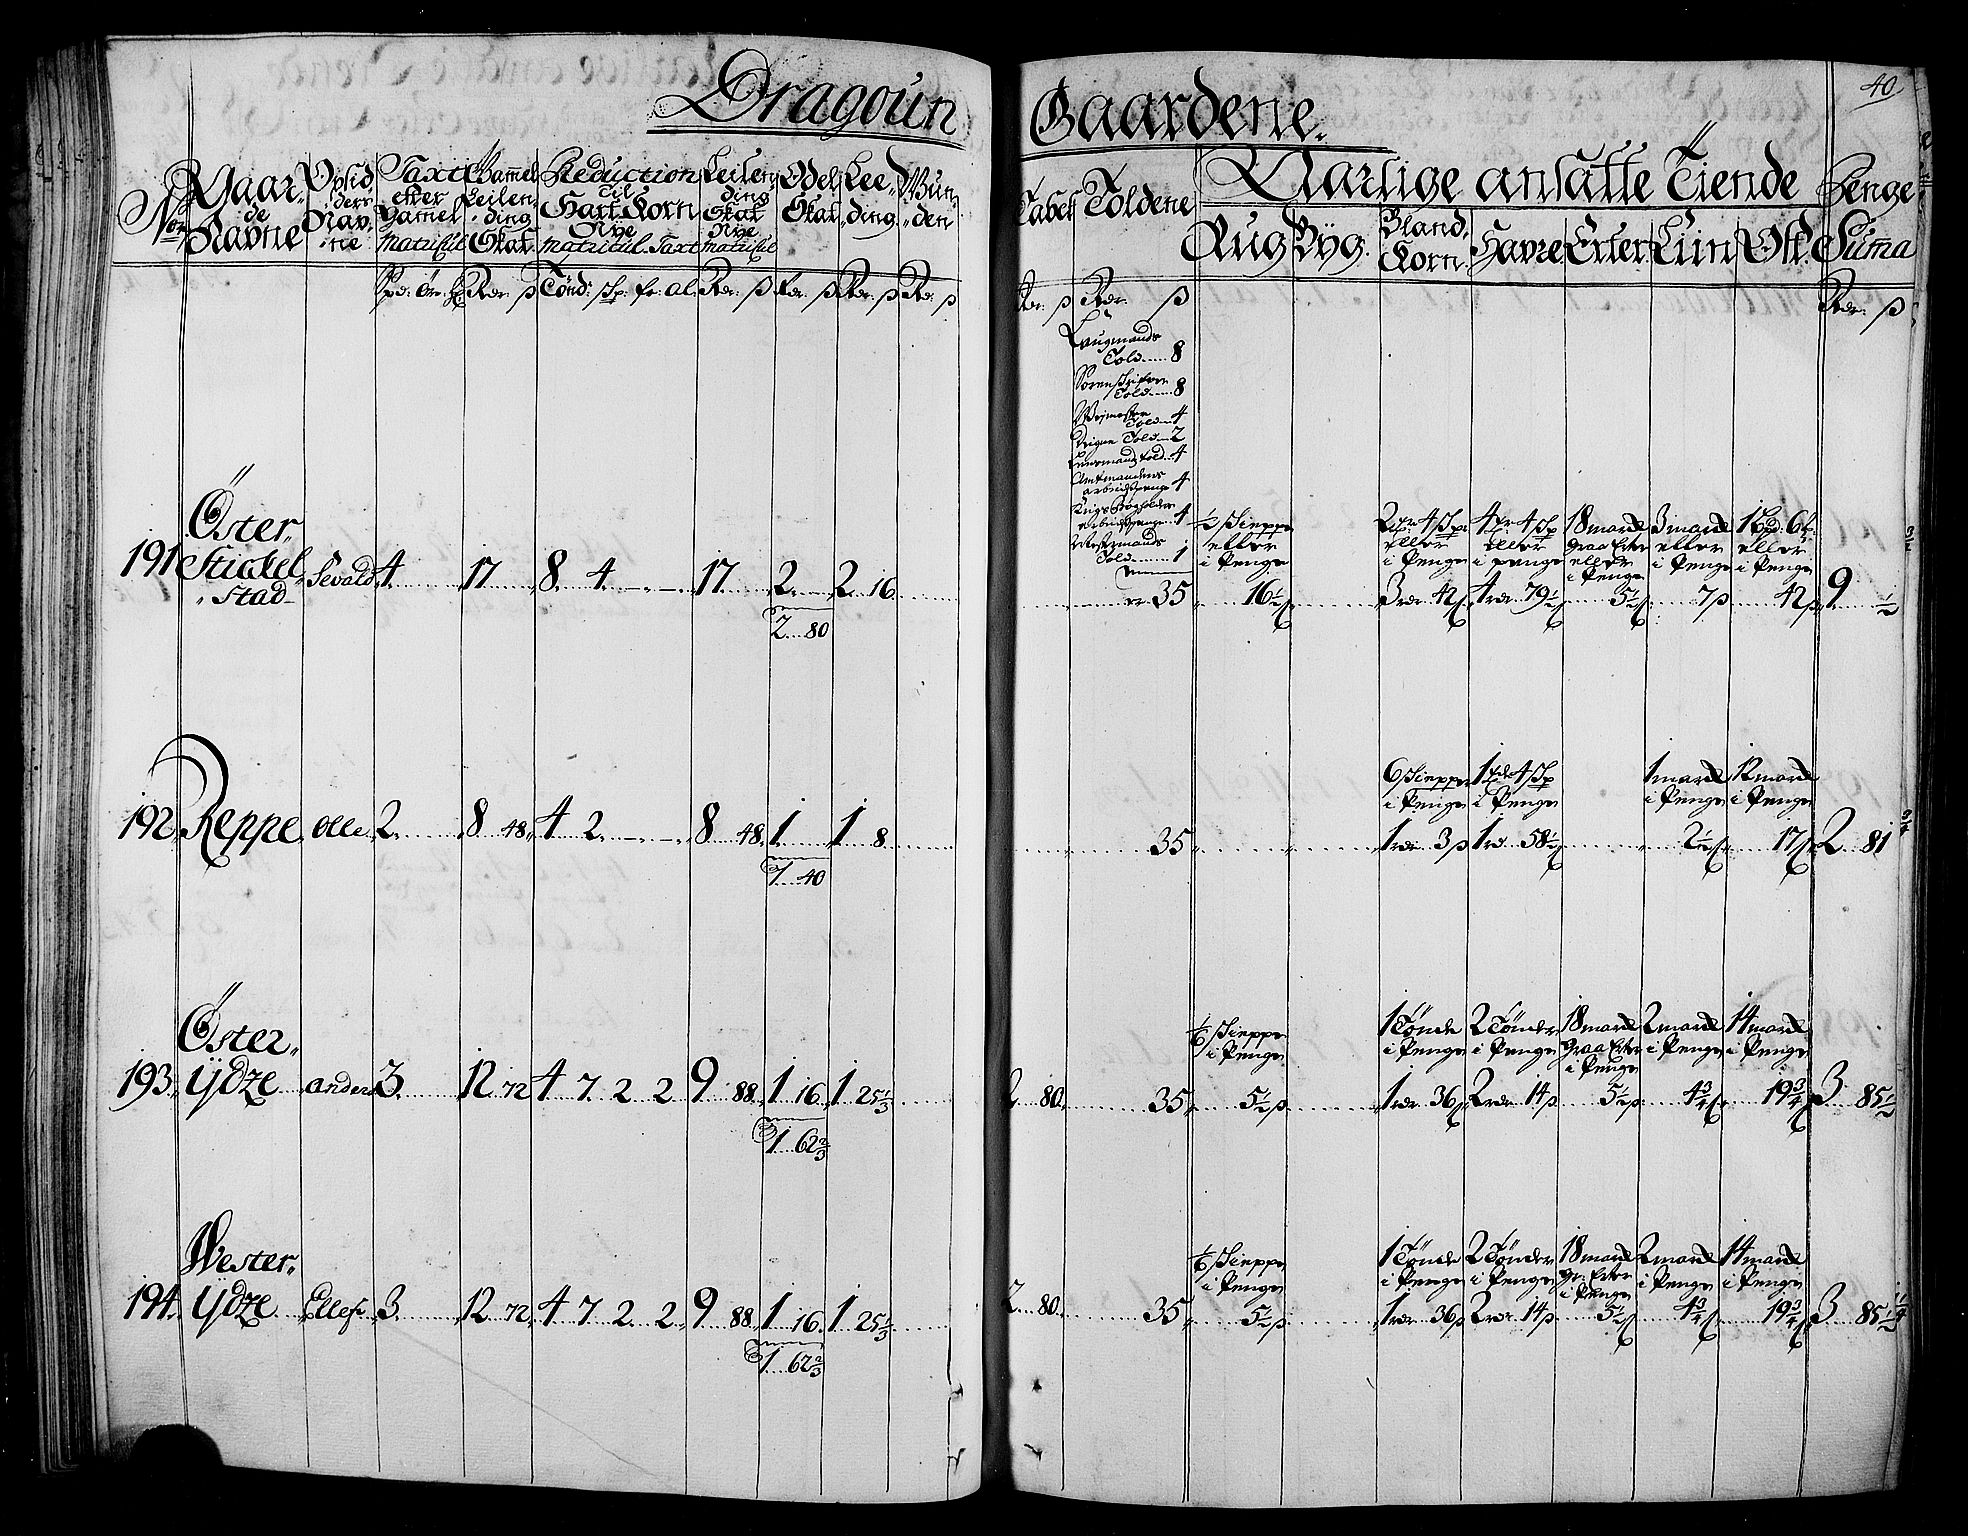 Dragoun Gaardene.
40
Nor
Gaar-
de
Navne
Opsid,,
ders
Nav-
ne
Taxt
efter
Gamel
Matricul
Gammel
Leilen-
ding
Skat
Reduction
Til
Hart Korn
Nye
Matricul Taxt
Leilen-
ding
Skat
Nye
Matricul
Odel
Skat
Lee-
ding
Mun-
den
Tabel
Toldene
Aarlige ansatte Tiende
Rug
Byg
Bland,
Korn
Havre
Erter
Liin
Ost
Penge
Suma
Spd: Ør: Rdr: ß Tønd: Sp: fr: al: Rdr: ß Rdr: ß Rdr: ß Rdr: ß
Rdr: ß Rdr: ß
Rdr: ß
Laugmands
Told 8
Sorenskriver
Told 8
Told 4
Told 2
Lensmands told 4
Amtmandens
arbeidspenge 4
arbeidspenge 4
Told 1
35
191 Øster
Stickel
stad Sevald 4 17 8 4 17 2 2 16
2 80
½ Skieppe
eller
i Penge
16½ ß
2 tr 4 Sp
eller
i Penge
3 rdr 42 ß
4 tr 4 Sp
eller
i penge
4 rdr 79½ ß
18 mark
Graa Erter
eller
i Penge
5½ ß
3 mark
eller
i Penge
7 ß
eller
i Penge
42 ß
9 ½
192 Reppe Olle 2 8 48 4 2 8 48 1 1 8
1 40
35
6 Skiepper
i Penge
1 rdr 3 ß
1 Tde 4 Sp
i Penge
1 rd 58½ ß
1 mark
i Penge
2½ ß
12 mark
i Penge
17 ß
2 81
193 Øster
Ydze Anders 3 12 72 4 7 2 2 9 88 1 16 1 25⅓
1 62⅔
2 80 35
⅙ Skieppe
i Penge
5½ ß
1 Tønde
i Penge
1 rdr 36 ß
2 Tønder
i Penge
2 rdr 14 ß
18 mark
Graa Erter
i Penge
5½ ß
2 mark
i Penge
4¾ ß
14 mark
i Penge
19¾ ß
3 85½
194 Wester
Ydze Ellef 3 12 72 4 7 2 2 9 88 1 16 1 25⅓
1 62⅔
2 80 35
⅙ Skieppe
i Penge
5½ ß
1 Tønde
i Penge
1 rdr 36 ß
2 Tønder
i Penge
2 rdr 14 ß
18 mark
Gr: Erter
i Penge
5½ ß
2 mark
i Penge
4¾ ß
14 mark
i Penge
19¾ ß
3 85½